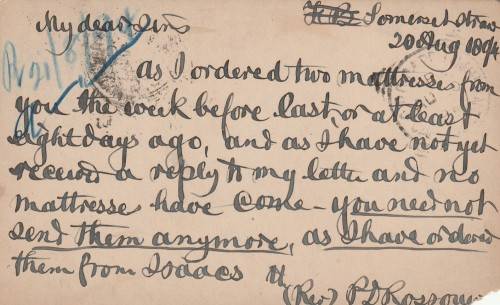 Somerset Straw
My dear Sirs 20 Aug 1894
R 21/8/94
as I ordered two mattresses from
you the week before last, or at least
eight days ago, and as I have not yet
received a reply to my letter and no
mattresse have come - you need not
send them anymore, as I have ordered
them from Isaacs
(Rev) P D Rossouw